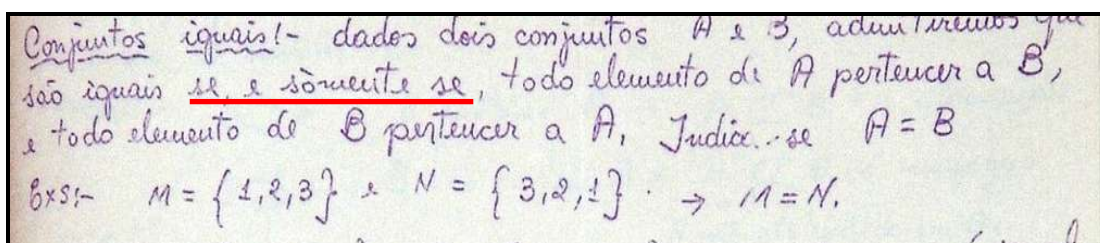 Conjuntos iguais:- dados dois conjuntos A e B, admitiremos que
são iguais se, e sòmente se, todo elemento de A pertencer a B,
e todo elemento de B pertencer a A. Indica-se A = B
Exs:- M = {1,2,3} e N = {3,2,1} . → M = N.